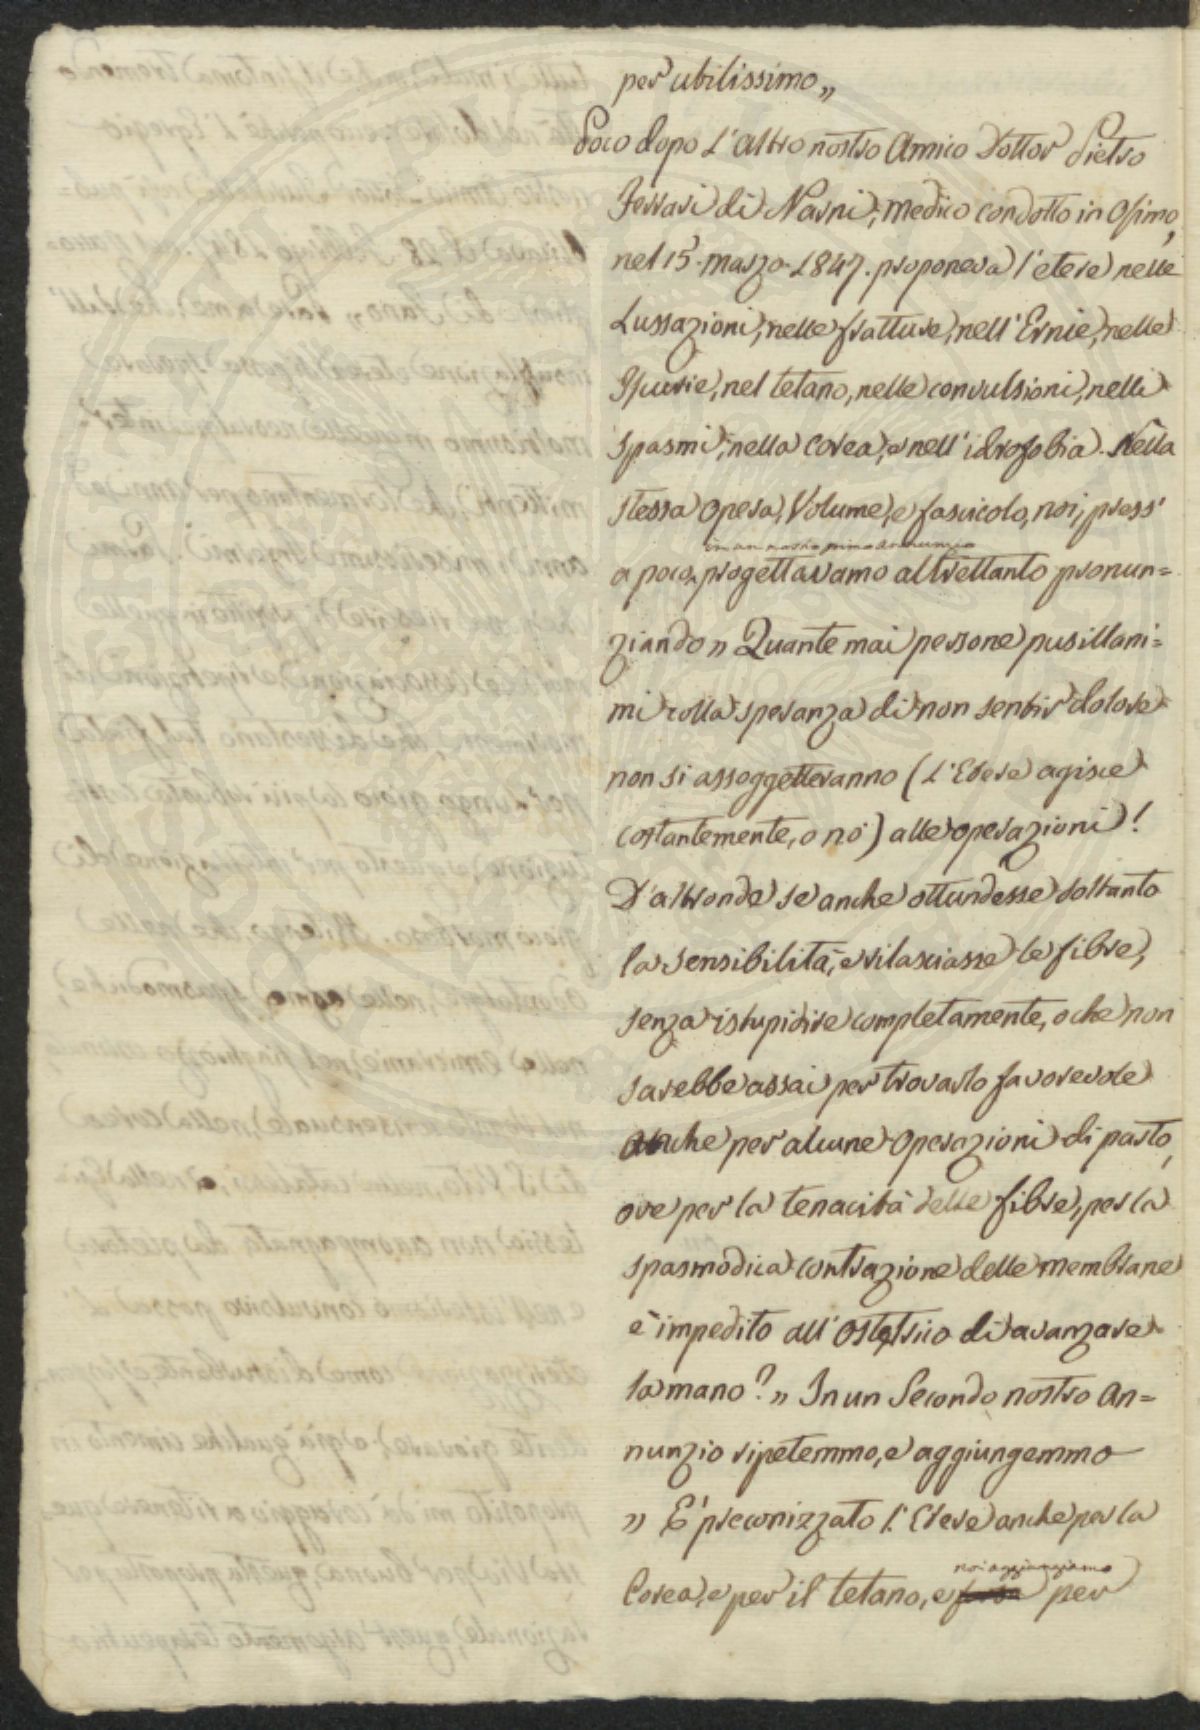 per utilissimo„
Poco dopo l'altro nostro Amico Dottor Pietro
Ferrari di Narni, medico condotto in Osimo,
nel 15 marzo 1847. proponeva l'etere nelle
Lussazioni, nelle fratture, nell'Ernie, nelle
Iscurie, nel tetano, nelle convulsioni, nelli
spasmi, nella corea, e nell'idrofobia. Nella
stessa opera, Volume, e fascicolo, noi, press'
in un nostro primo annunzio
a poco, progettavamo altrettanto pronun=
ziando „ Quante mai persone pusillani=
mi colla speranza di non sentir dolore
non si assoggetteranno (l'Etere agisce
costantemente, o nò) alle operazioni!
D'altronde se anche ottundesse soltanto
la sensibilità, e rilasciasse le fibre,
senza istupidire completamente, o che non
sarebbe assai per trovarlo favorevole
anche per alcune operazioni di parto,
ove per la tenacità delle fibre, per la
spasmodica contrazione delle membrane
è impedito all'Ostetrico di avanzare
la mano? „ In un Secondo nostro An=
nunzio ripetemmo, e aggiungemmo
„ E' preconizzato l'Etere anche per la
noi aggiungiamo
Corea, e per il tetano, e per